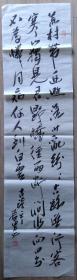 荒村带返照落叶乱纷纷古路无行客
寒山独见君野桥经雨断涧水向田分
不为怜同病何人到白云